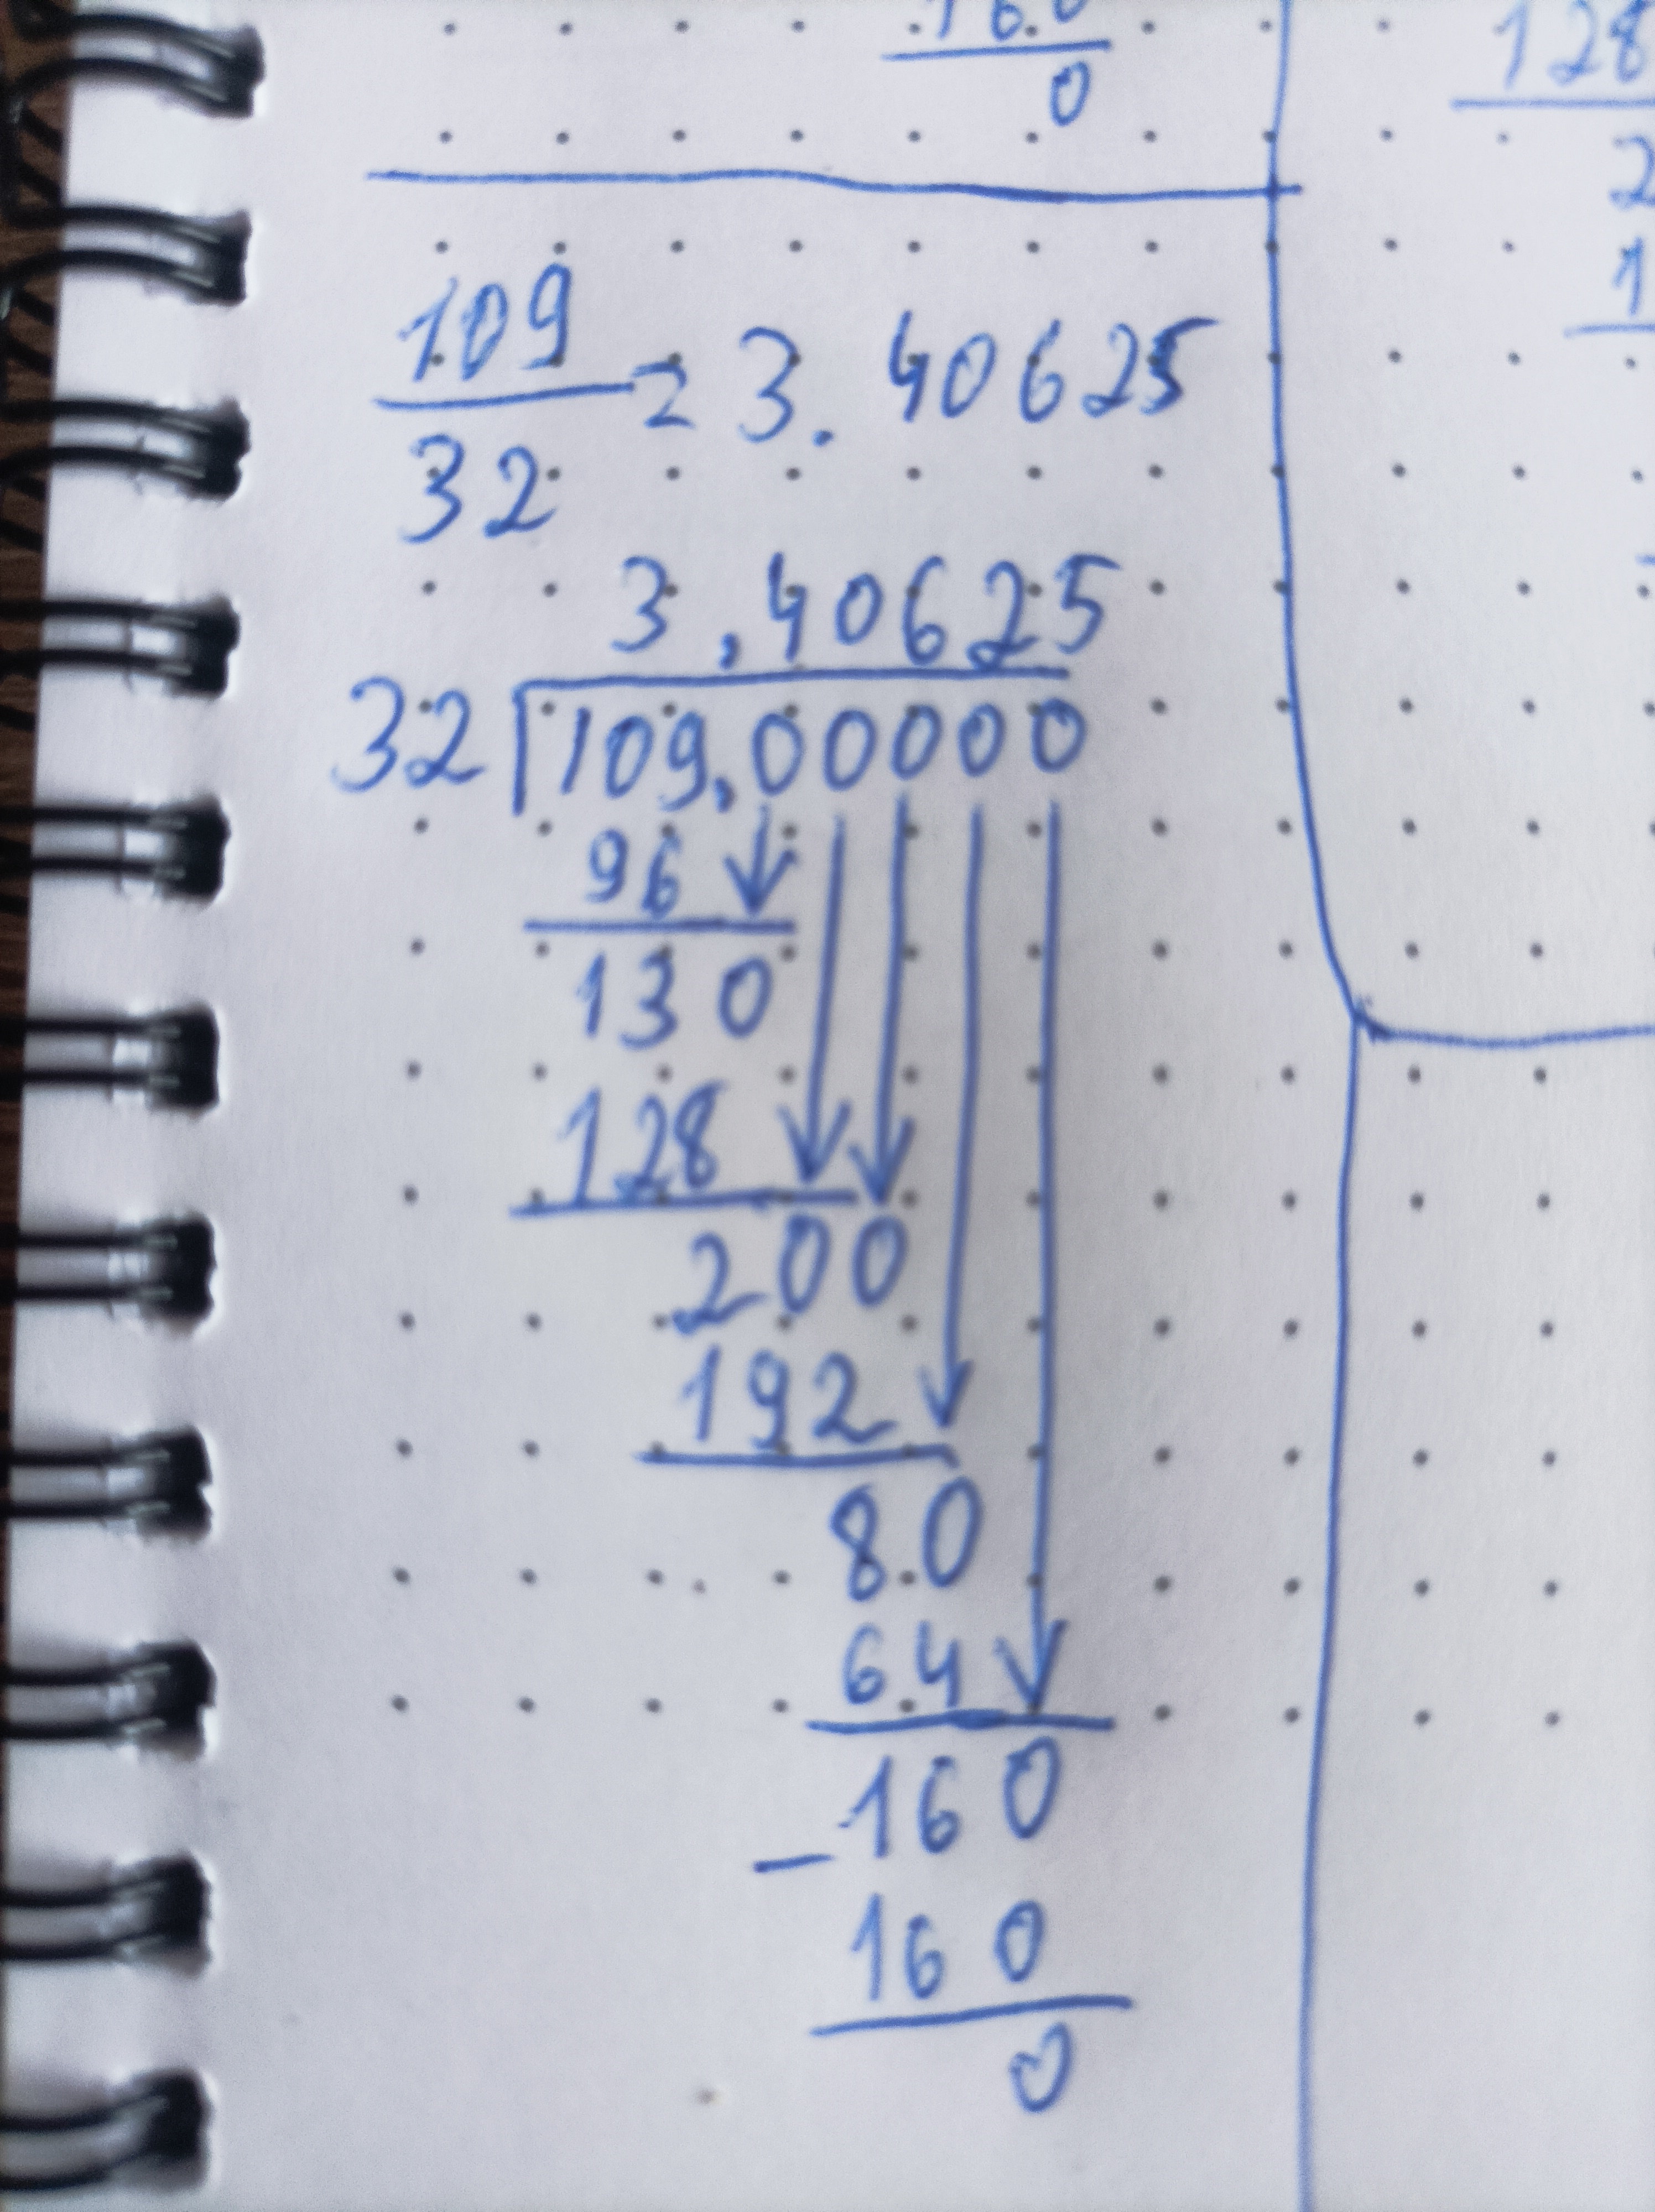 16.0
0
128
2
1
109
32
= 3.40625
3,40625
32 109,00000
96
130
128
200
192
80
64
160
- 160
0